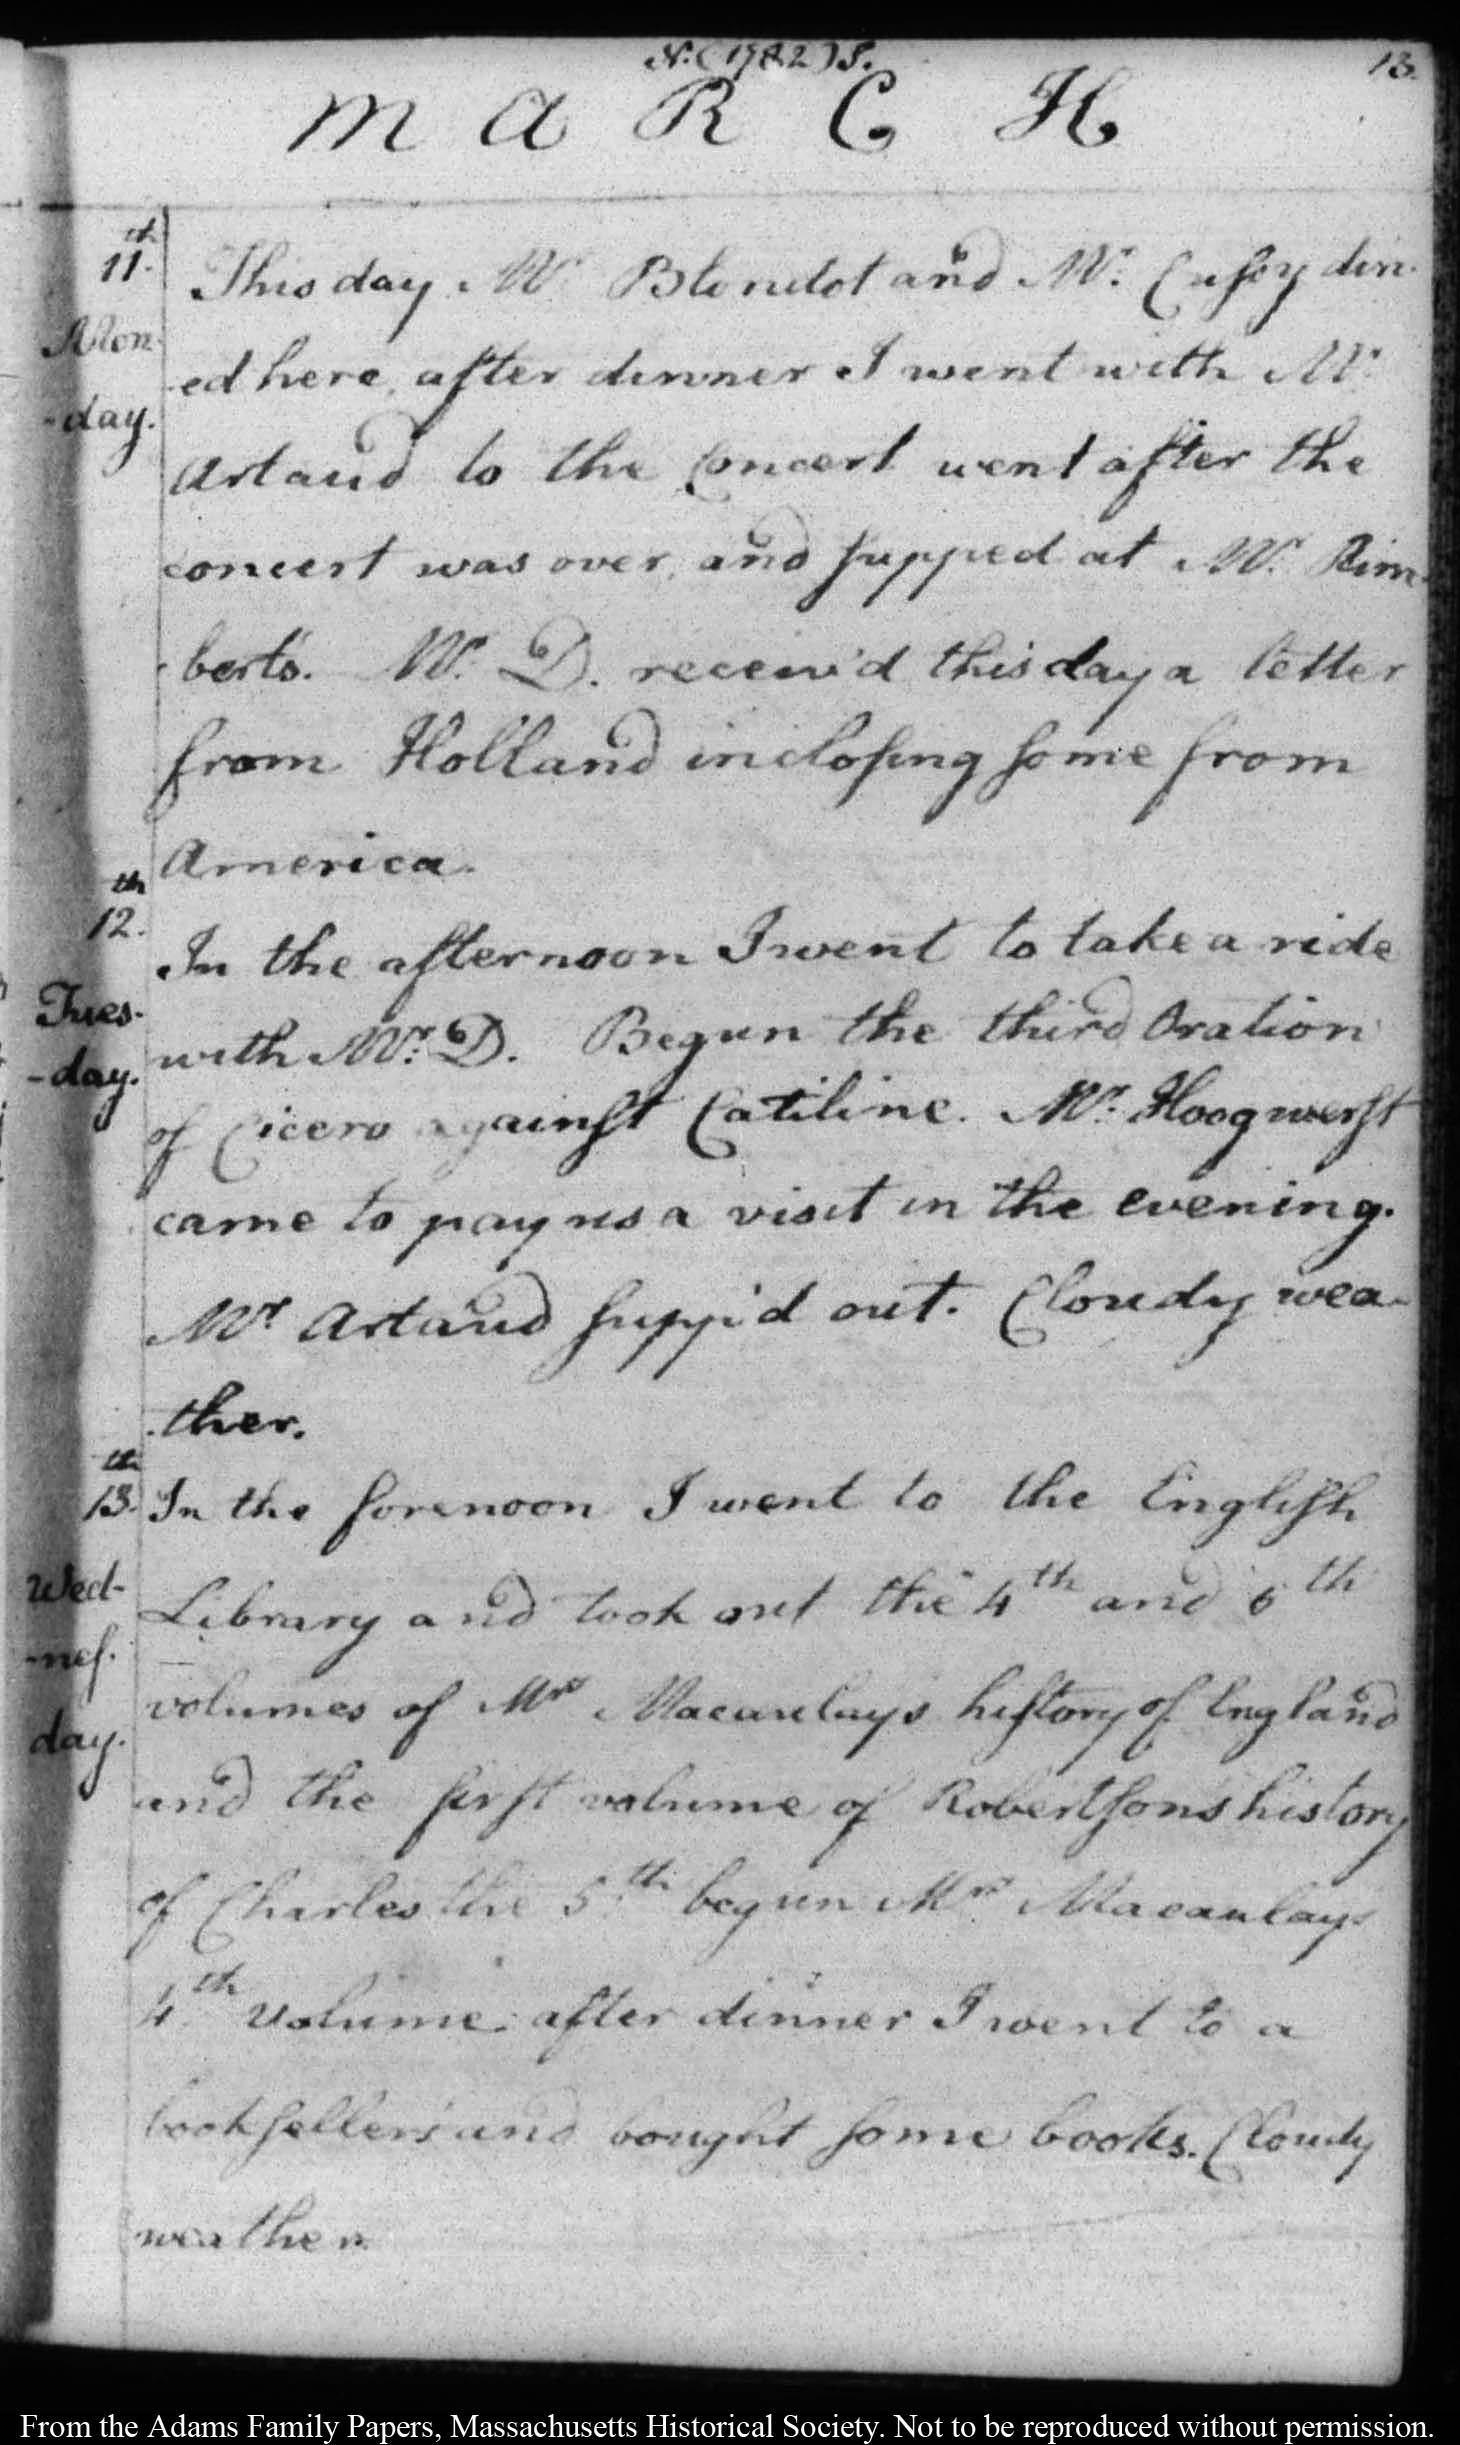 N. (1782) S.
13.
M A R C H
11.th
Mon-
-day.
This day Mr. Blondot and Mr. Cusoy din-
ed here, after dinner I went with Mr.
Artaud to the Concert went after the
concert was over, and supped at Mr. Rim-
-bert's. Mr. D. receiv'd this day a letter
from Holland inclosing some from
America.
12.th
Tues-
-day.
In the afternoon I went to take a ride
with Mr. D. Begun the third Oration
of Cicero against Catiline. Mr. Hoogwerst
came to pay us a visit in the evening.
Mr. Artaud supp'd out. Cloudy wea-
-ther.
13.th
Wed-
-nes-
day.
In the forenoon I went to the English
Library and took out the 4th and 5th
volumes of Mrs Macaulays history of England
and the first volume of Robertsons history
of Charles the 5.th begun Mrs Macaulays
4.th volume. after dinner I went to a
bookseller's and bought some books. Cloudy
weather.
From the Adams Family Papers, Massachusetts Historical Society. Not to be reproduced without permission.